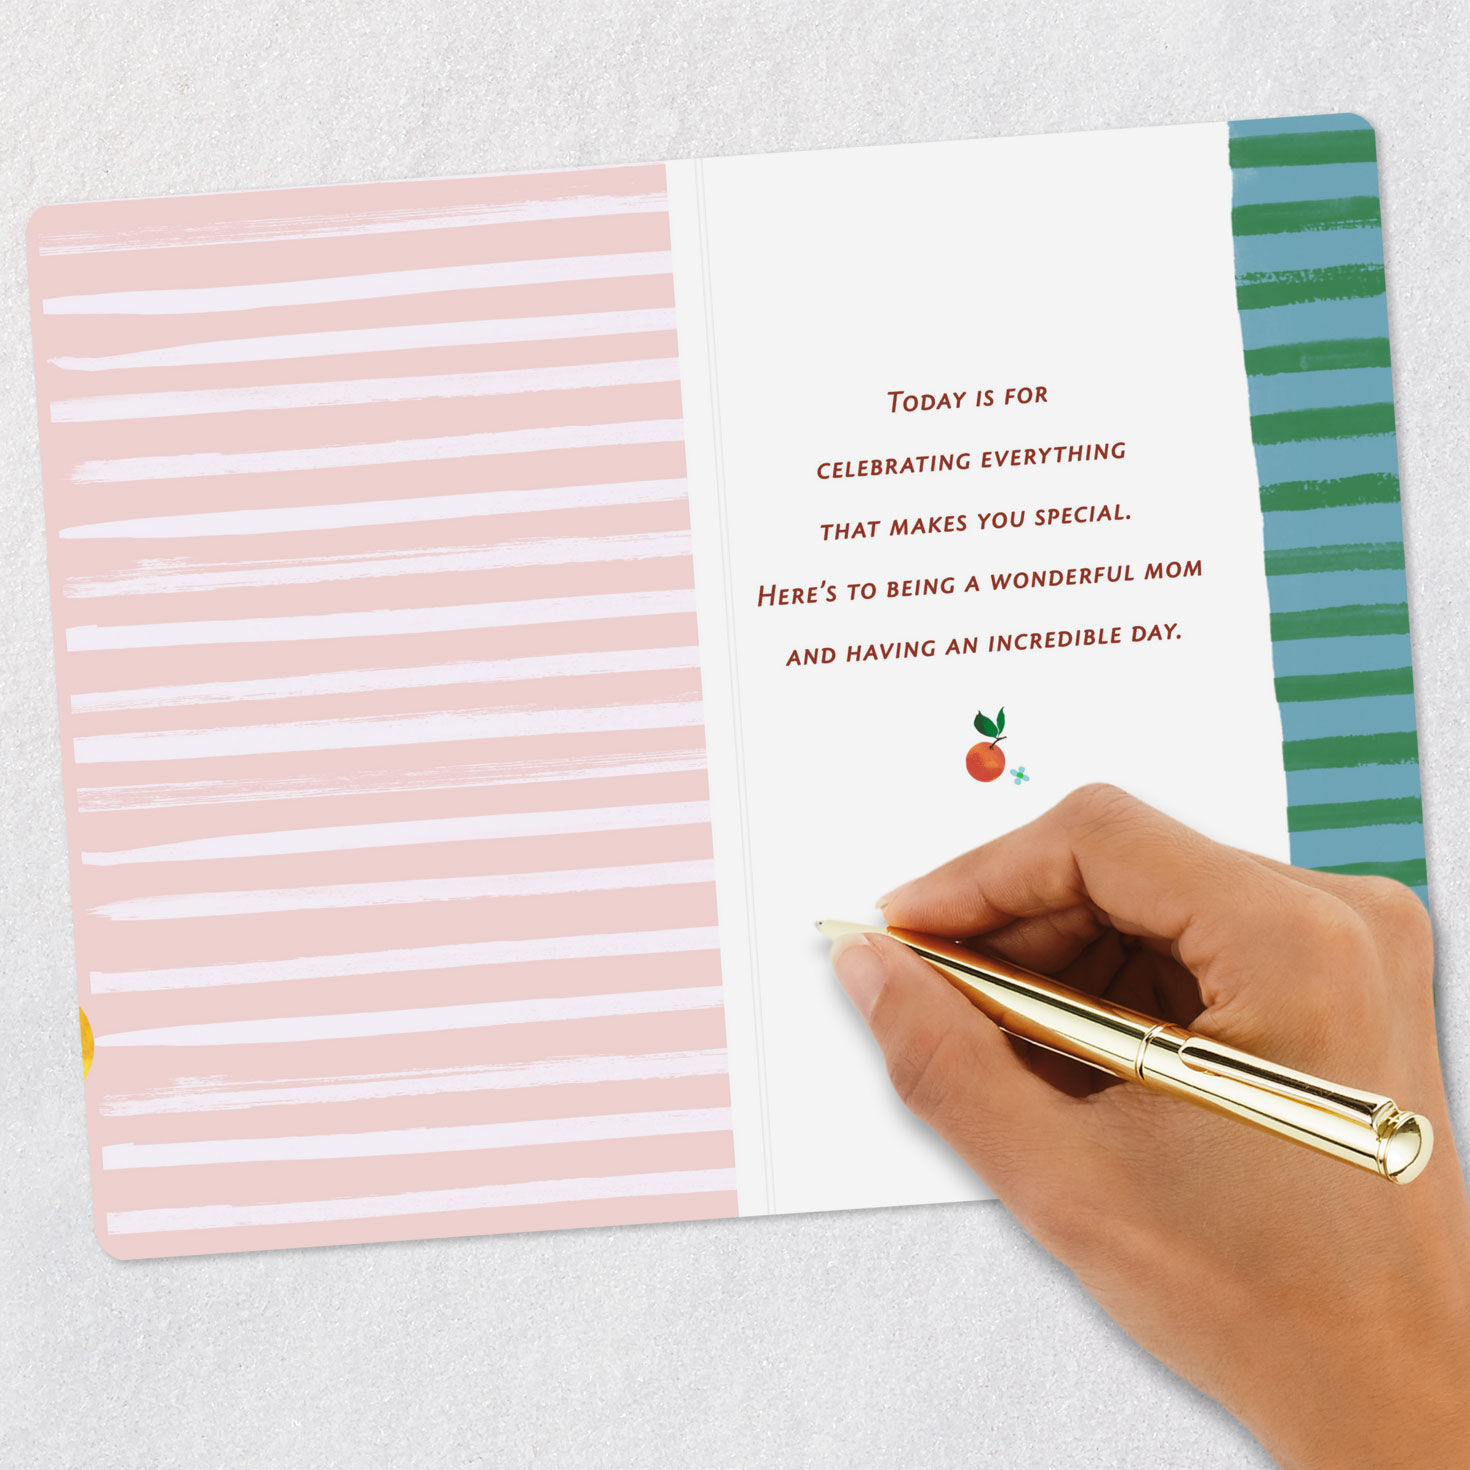 Today is for
celebrating everything
that makes you special.
Here's to being a wonderful mom
and having an incredible day.